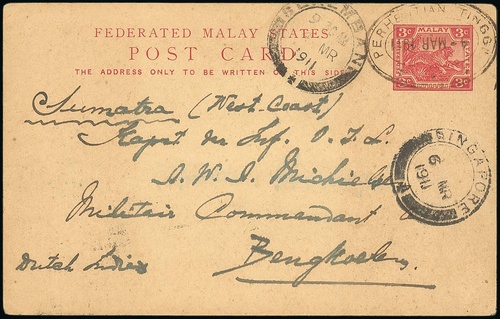 FEDERATED MALAY STATES
POST CARD
THE ADDRESS ONLY TO BE WRITTEN ON THIS SIDE
SEREMBAN
9
MR
1911
3c MALAY 3c
PERHENTIAN TINGGI
MAR 1911
SINGAPORE
9
MR
1911
Sumatra (West-Coast)
Kapt. der Inf. O. I. L.
Militair Commandant
Bengkoelen
Dutch Indies